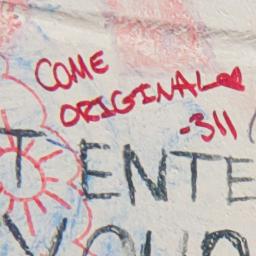 COME
ORIGINAL
-311
TENTE
YOUR